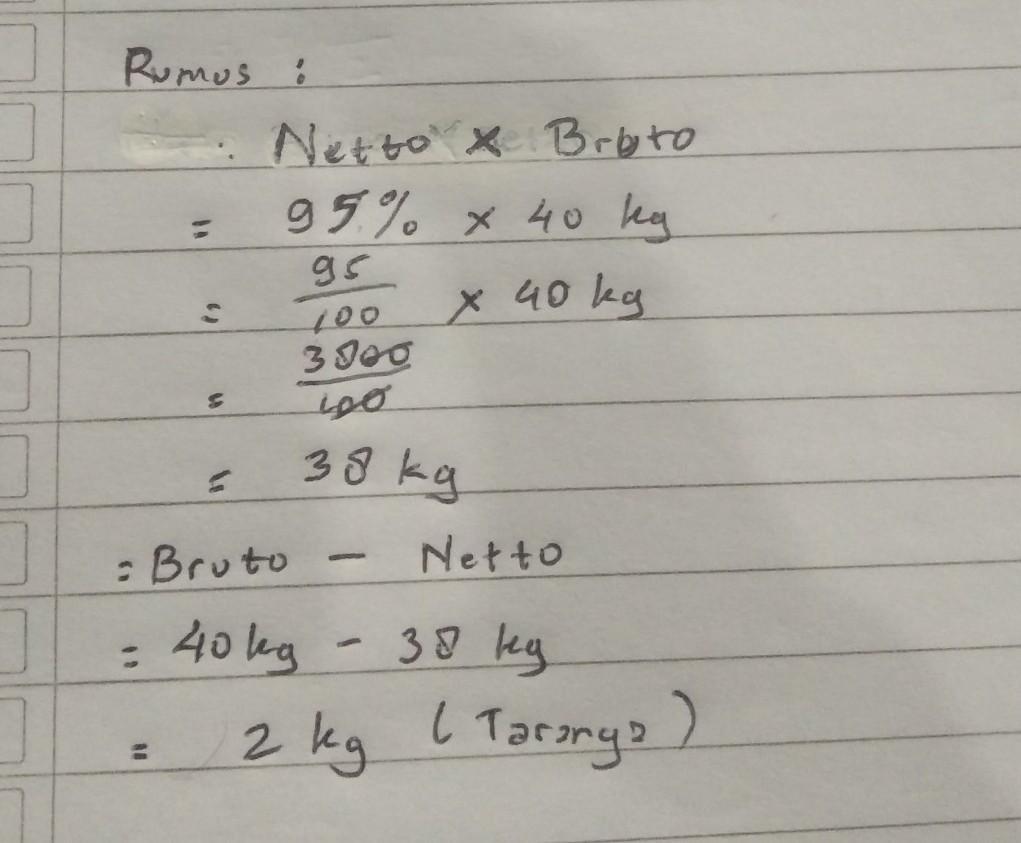 Rumus :
Netto x Bruto
= 95% x 40 kg
= 95/100 x 40 kg
= 3800/100
= 38 kg
= Bruto - Netto
= 40 kg - 38 kg
= 2 kg (Taranya)